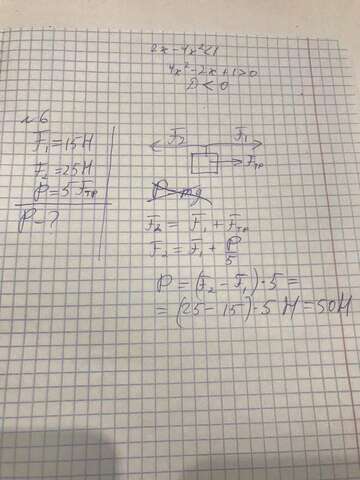 2x-4x²<1
4x²-2x+1>0
D<0
№6
F₁=15Н
F₂=25Н
P=5Fтр
P-?
F₂
F₁
Fтр
P=mg
F₂ = F₁ + Fтр
F₂ = F₁ + P/5
P = (F₂ - F₁)·5 =
= (25-15)·5 Н = 50Н